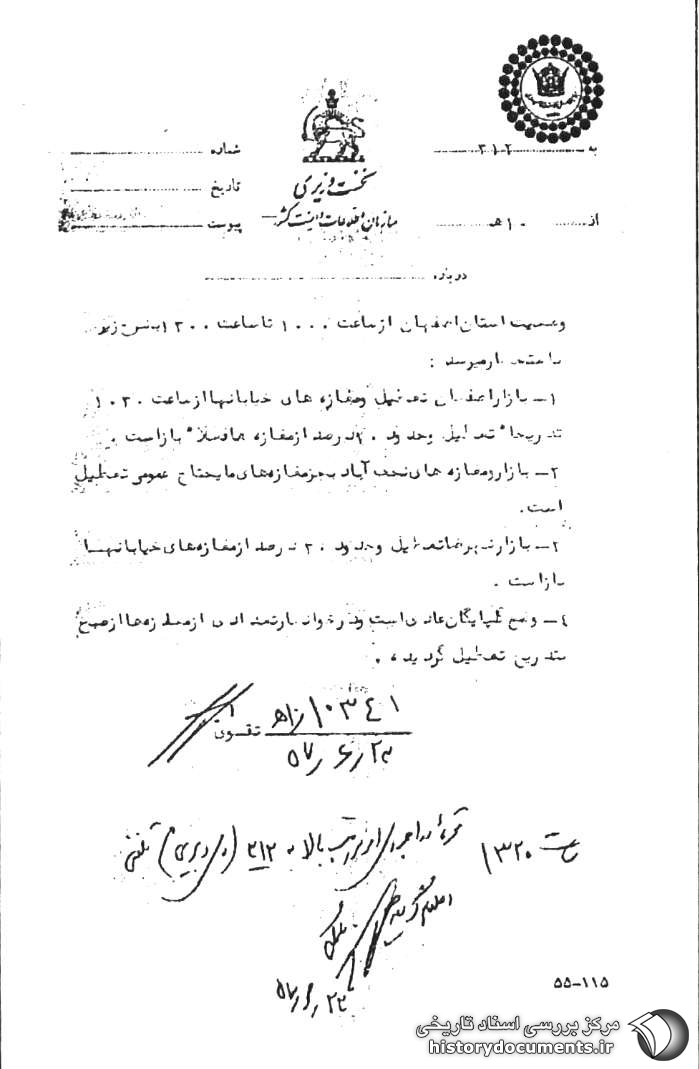 به ۳۱۲
شماره
نخست وزیری
تاریخ
سازمان اطلاعات و امنیت کشور
از ۱۰هـ
پیوست
درباره
وضعیت استان اصفهان از ساعت ۱۰۰۰ تا ساعت ۱۲۰۰ بشرح زیر
باستحضار میرسد :
۱ـ بازار اصفهان تعطیل ومغازه های خیابانها از ساعت ۱۰۳۰
تدریجا" تعطیل وحدود درصد از مغازه ها فعلا" باز است .
۲ـ بازار ومغازه های نجف آباد بجز مغازه های مایحتاج عمومی تعطیل
است .
۳ـ بازار شهرضا تعطیل وحدود ۲۰ درصد از مغازه های خیابانهــا
باز است .
٤ـ وضع گلپایگان عادی است ودر خوانسار تعدادی از مغازه ها از صبح
بتدریج تعطیل گردیده .
۱۰۳٤۱/۱۰هـ
تقسوی
۵۷/۶/۲۳
ساعت ۱۳۲۰
بالا به ۳۱۲ تلفنی
اعلام گردید
۵۷/۶/۲۳
۵۵-۱۱۵
مرکز بررسی اسناد تاریخی
historydocuments.ir